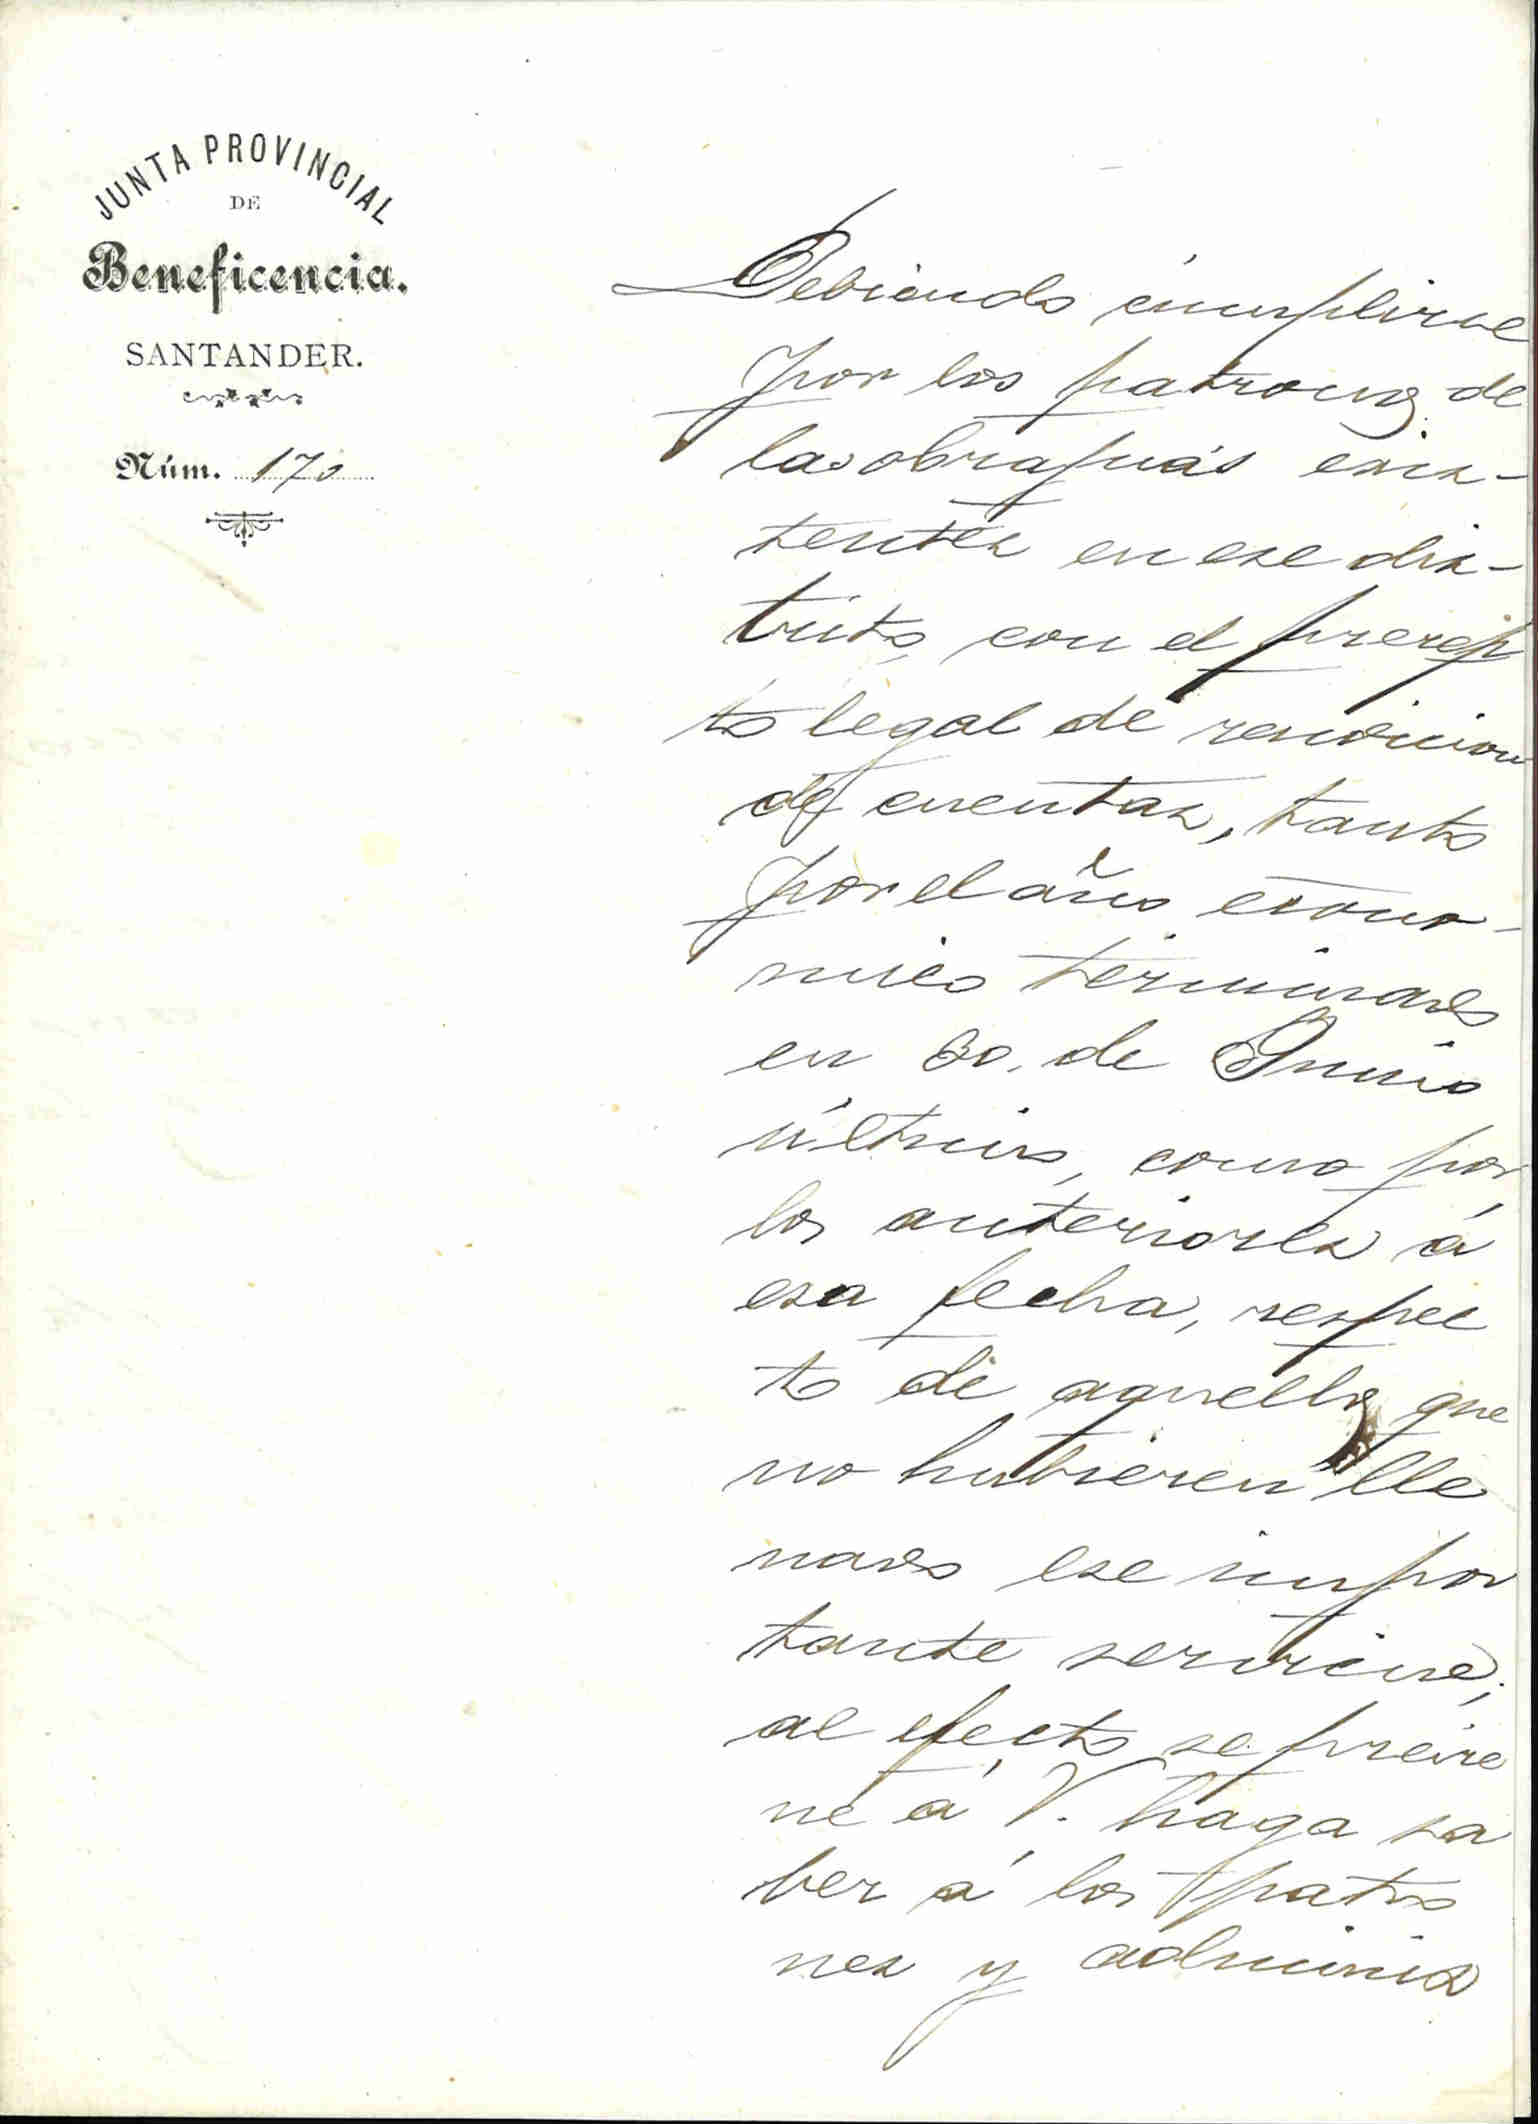 JUNTA PROVINCIAL
DE
Beneficencia.
SANTANDER.
Núm. 170
Debiendo cumplirse
por los patronos de
las obras pias exis-
tentes en ese dis-
trito, con el precep
to legal de rendicion
de cuentas, tanto
por el año econo-
mico terminado
en 30 de Junio
último, como por
los anteriores á
esa fecha, respec
to de aquellos que
no hubieren lle
nado ese impor
tante servicio;
al efecto se previe
ne á V. haga sa
ber á los patro
nes y adminis